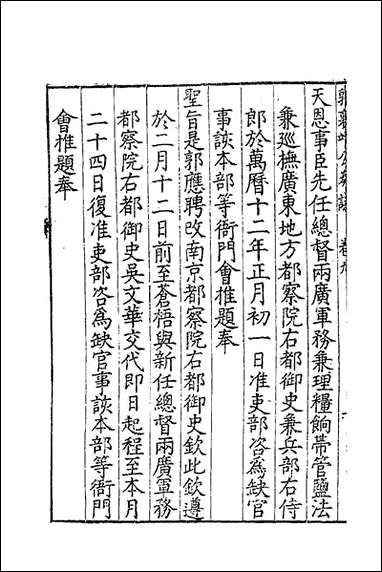 郭襄
公
卷九
天恩事臣先任總督兩廣軍務兼理糧餉帶管鹽法
兼巡撫廣東地方都察院右都御史兼兵部右侍
郎於萬曆十二年正月初一日准吏部咨為缺官
事該本部等衙門會推題奉
聖旨是郭應聘改南京都察院右都御史欽此欽遵
於二月十二日前至蒼梧與新任總督兩廣軍務
都察院右都御史吳文華交代即日起程至本月
二十四日復准吏部咨為缺官事該本部等衙門
會推題奉